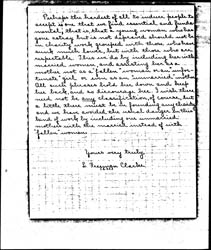 Perhaps the hardest of all to induce people to
accept is one that we find essential, and funda-
mental, that is, that a young woman who has
gone astray but is not depraved should not be
in charity work grouped with those who have
sunk much lower, but with those who are
respectable. This we do by including her with
married women, and assisting her as a
mother not as a "fallen" woman or an "unfor-
tunate" girl or even as an "unmarried" mother.
All such phrases hold her down and keep
her back, and so discourage her. I wish there
need not be any classification, of course, but
a little there must be in founding any charity
and we have avoided the usual danger in this
kind of work by including our unmarried
mothers with the married instead of with
"fallen" women.
Yours very truly
Clarke